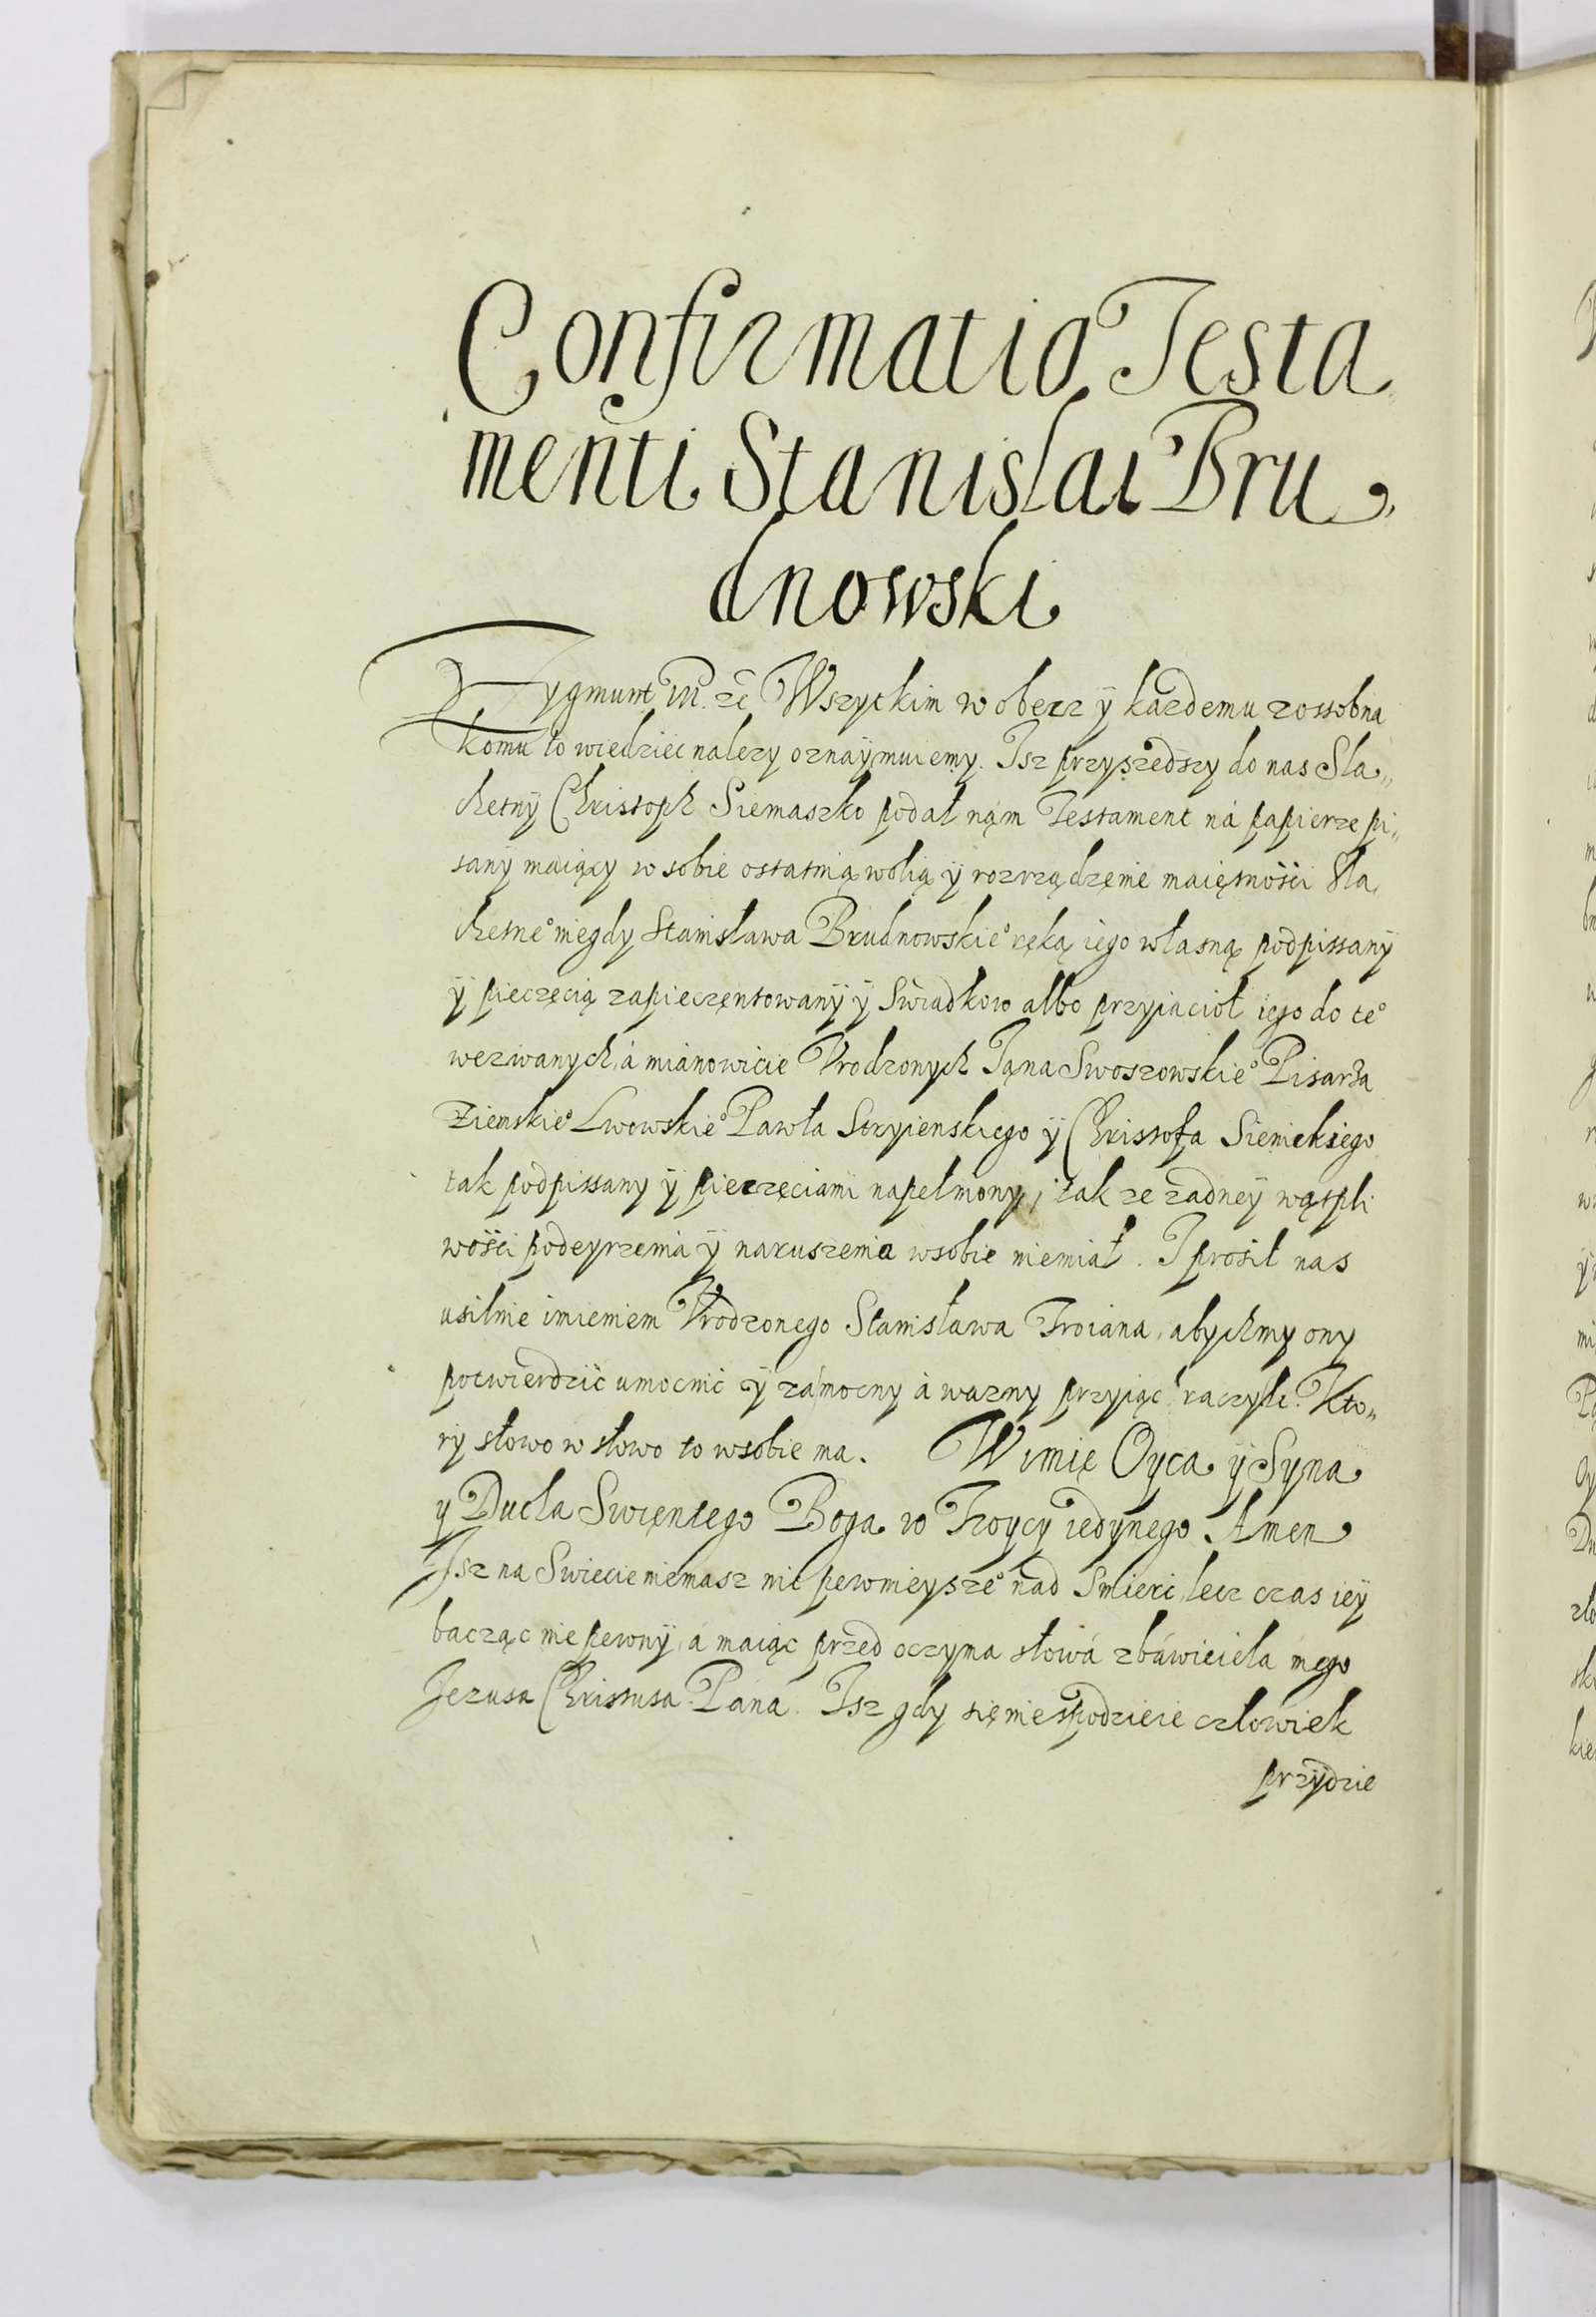 Confirmatio Testa„
menti Stanislai Bru„
dnowski
Zygmunt III. etc Wszytkim w obecz ÿ kazdemu zossobna
komu to wiedziec nalezy oznaÿmuiemy. Isz przyszedszy do nas Sla„
chetnÿ Christoph Siemaszko podał nąm Testament ná papierze pi„
sanÿ maiący w sobie ostatnią wolią ÿ rozrządzęnie maiętnośći Sla„
chetne° niegdy Stanisława Brudnowskie° ręką iego własną podpissanÿ
ÿ pieczęcią zapieczęntowanÿ ÿ Swiadkow albo przyiacioł iego do te°
wezwanych, á mianowicie Vrodzonych Iąna Swoszowskie° Pisarza
Ziemskie° Lwowskie° Pawła Stryienskiego ÿ Christofa Sienickiego
tak podpissany ÿ pieczęciami napełniony, i tak ze zadneÿ wątpli
wośći podeyrzenia ÿ naruszenia wsobie niemiał. I prosił nas
usilnie imieniem Vrodzonego Stanisława Troiana, abychmy ony
potwierdzić umocnić ÿ za mocny á wazny przyiąć raczyli. Kto„
ry słowo w słowo to wsobie ma. W imię Oyca ÿ Syna
y Ducha Swięntego Boga w Troycy iedynego Amen
Isz na Swiecie niemasz nic pewnieysze° nad Smierć, lecz czas ieÿ
bacząc nie pewnÿ, á maiąc przed oczyma słowá zbáwiciela mego
Jezusa Christusa Pána. Isz gdy się niespodzieie człowiek
przÿdzie